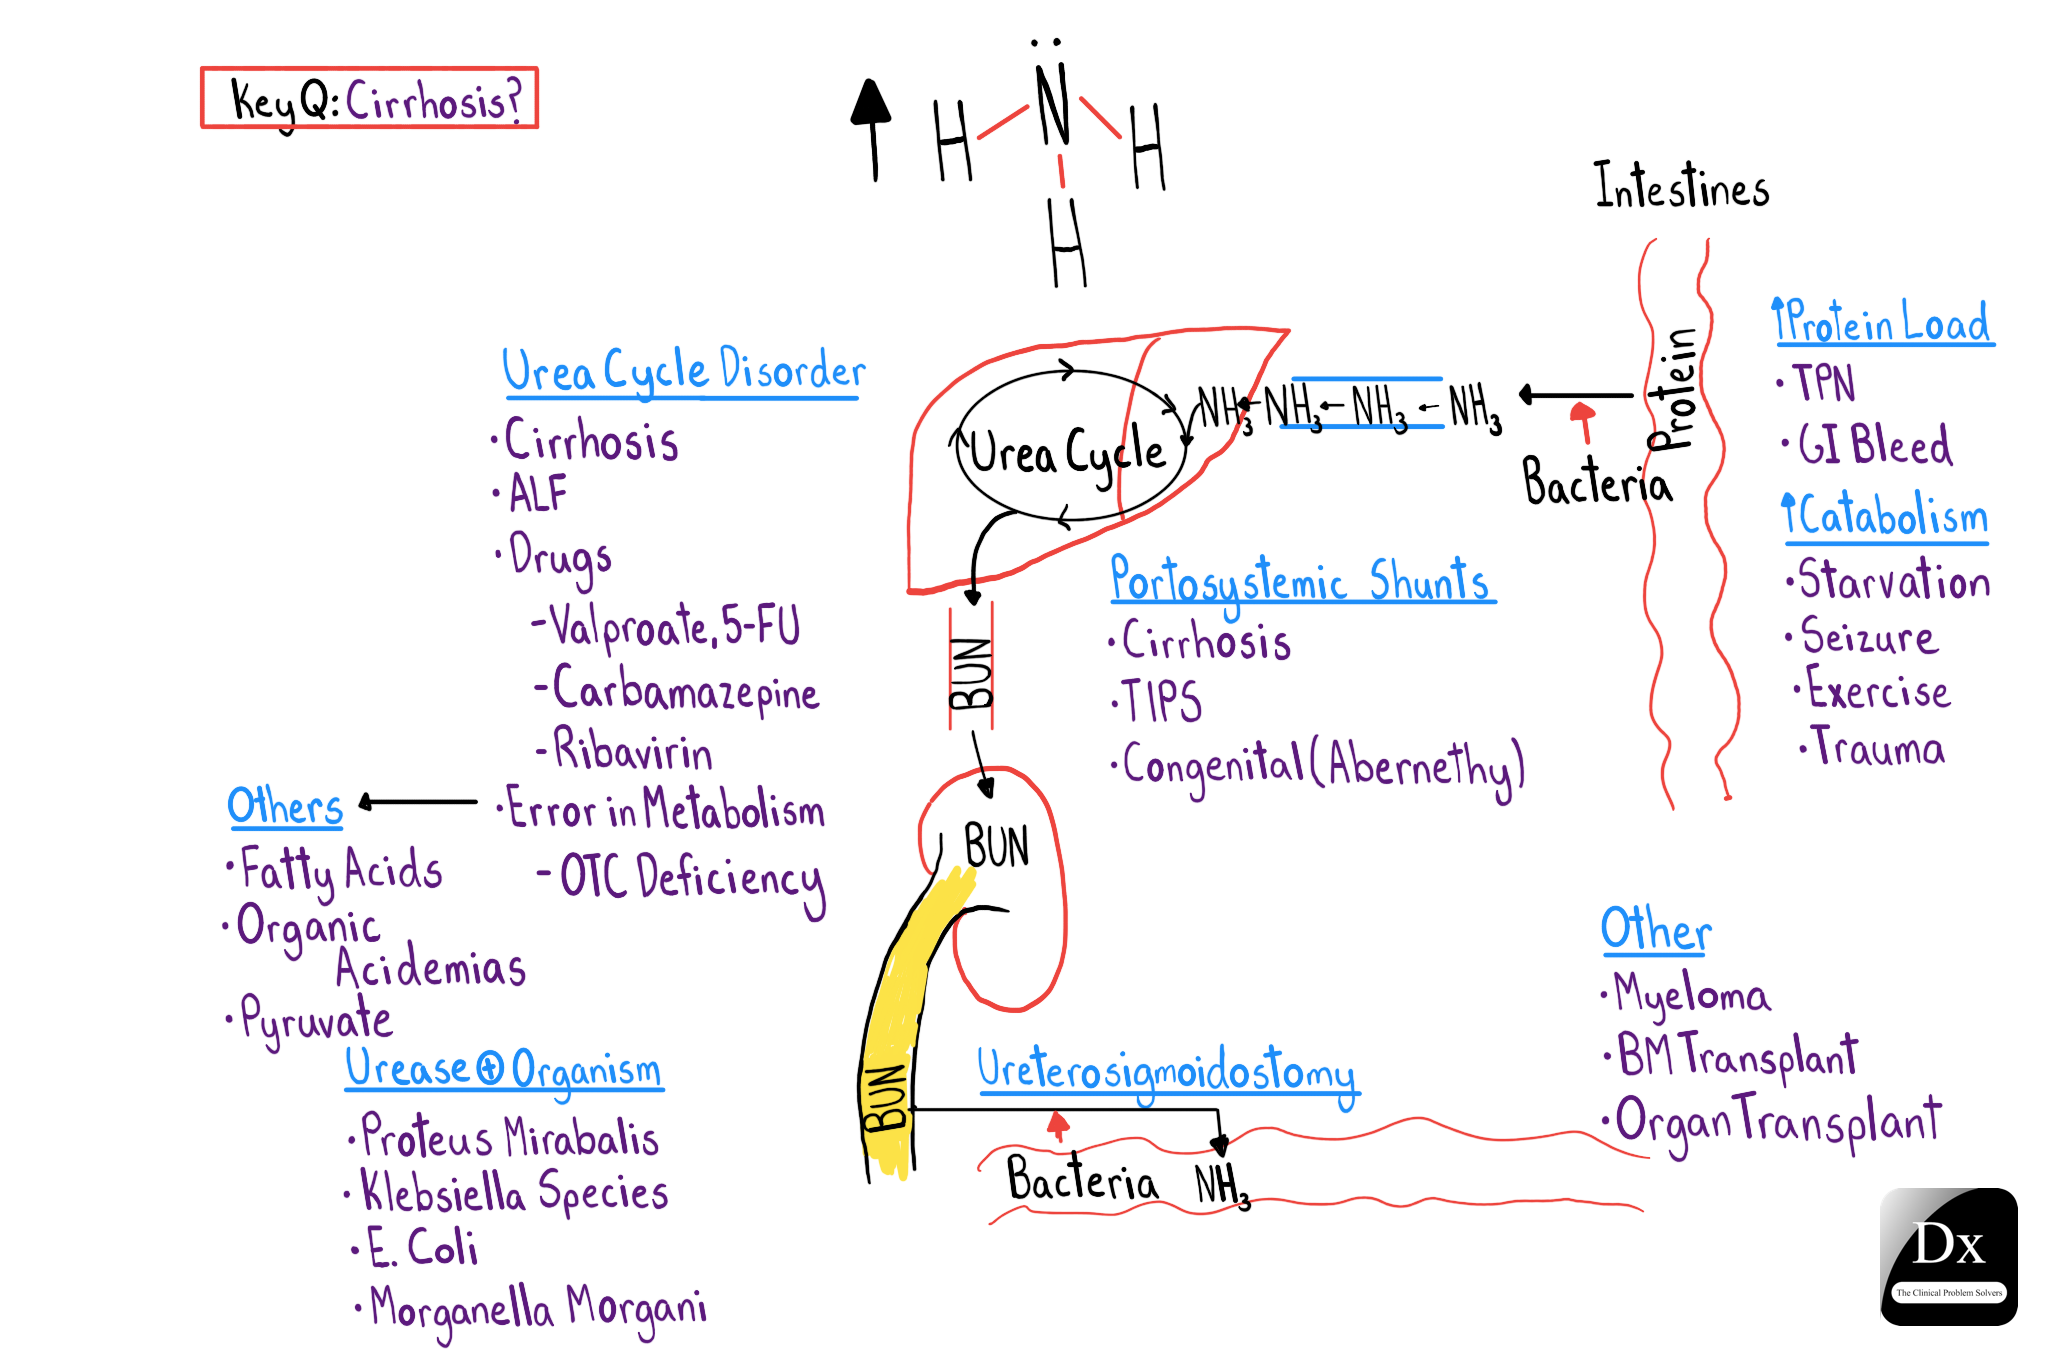 Key Q: Cirrhosis?
↑
N
H H
H
Intestines
Protein
Bacteria
NH3 ← NH3 ← NH3 ← NH3
Urea Cycle
BUN
BUN
BUN
Urea Cycle Disorder
• Cirrhosis
• ALF
• Drugs
- Valproate, 5-FU
- Carbamazepine
- Ribavirin
• Error in Metabolism
- OTC Deficiency
Others
• Fatty Acids
• Organic
Acidemias
• Pyruvate
Urease ⊕ Organism
• Proteus Mirabalis
• Klebsiella Species
• E. Coli
• Morganella Morgani
Portosystemic Shunts
• Cirrhosis
• TIPS
• Congenital (Abernethy)
↑Protein Load
• TPN
• GI Bleed
↑Catabolism
• Starvation
• Seizure
• Exercise
• Trauma
Ureterosigmoidostomy
Bacteria NH3
Other
• Myeloma
• BM Transplant
• Organ Transplant
Dx
The Clinical Problem Solvers